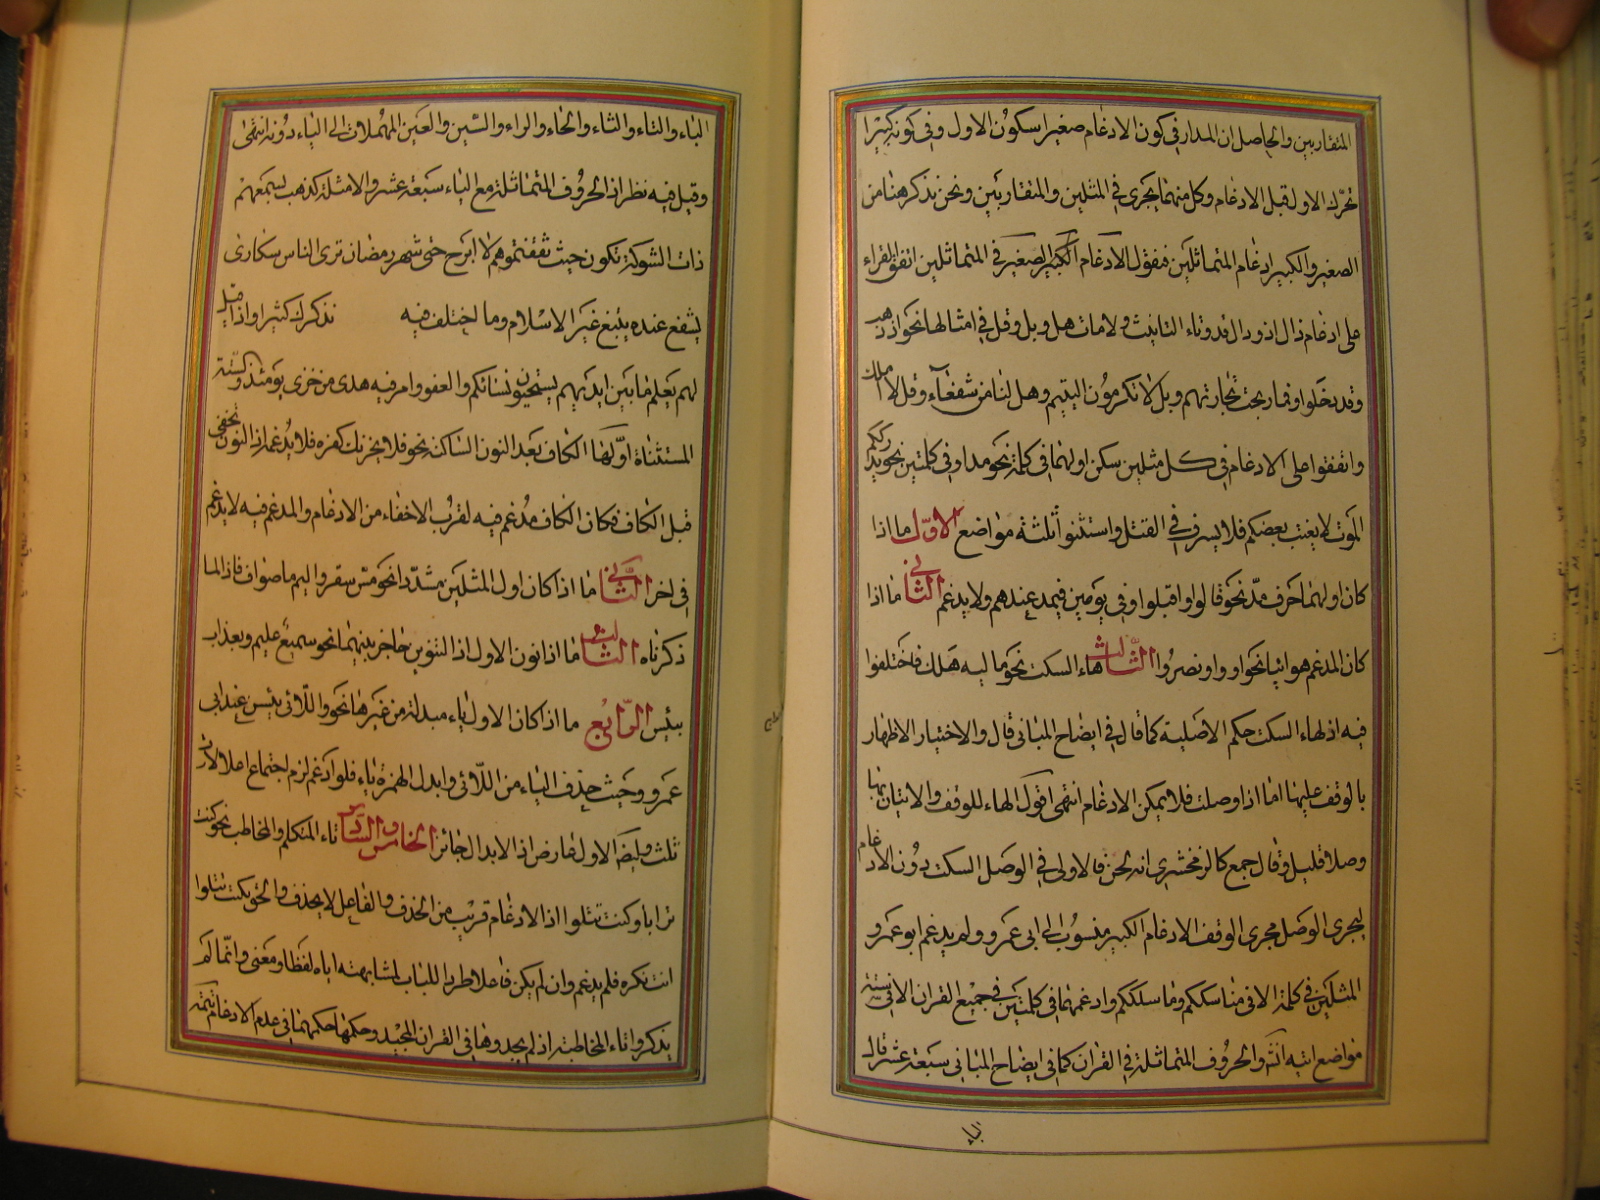 المتقاربين والحاصل ان المدار في كون الادغام صغيرا سكون الاول وفي كونه كبيرا
تحرك الاول قبل الادغام وكل منهما يجرى في المثلين والمتقاربين ونحن نذكر هنا من
الصغير والكبير ادغام المتماثلين فنقول الادغام الصغير في المتماثلين اتفق القراء
على ادغام ذال اذ ودال قد وتاء التانيث ولامات هل وبل وقل في امثالها نحو اذ ذهب
وقد دخلوا وفما ربحت تجارتهم وبل لا تكرمون اليتيم وهل لنا من شفعاء وقل لا املك
واتفقوا على الادغام في كل مثلين سكن اولهما في كلمة نحو مدا وفي كلمتين نحو يدرككم
الموت لا يغتب بعضكم فلا يسرف في القتل واستثنوا ثلثة مواضع الاول ما اذا
كان اولهما حرف مد نحو قالوا واقبلوا وفي يومين فيمد عندهم ولا يدغم الثاني ما اذا
كان المدغم هوائيا نحو اووا ونصروا الثالث هاء السكت نحو ماليه هلك فاختلفوا
فيه اذ لهاء السكت حكم الاصلية كما قال في ايضاح المباني قال والاختيار الاظهار
بالوقف عليها اما اذا وصلت فلا يمكن الادغام انتهى اقول الهاء للوقف والاتيان بها
وصلا قليل وقال جمع كالزمخشري انه لحن فالاولى في الوصل السكت دون الادغام
ليجرى الوصل مجرى الوقف الادغام الكبير منسوب الى ابى عمرو ولم يدغم ابو عمرو
المثلين في كلمة الا في مناسككم وما سلككم وادغمهما في كلمتين في جميع القران الا في ستة
مواضع والحروف المتماثلة في القران كما في ايضاح المباني سبعة عشر قال
الباء
الباء والتاء والثاء والحاء والراء والسين والعين المهملات الى الياء دونه انتهى
وقيل فيه نظر اذ الحروف المتماثلة مع الياء سبعة عشر والامثلة كذهب بسمعهم
ذات الشوكة تكون حيث ثقفتموهم لا ابرح حتى شهر رمضان ترى الناس سكارى
يشفع عنده يبتغ غير الاسلام وما اختلف فيه نذكرك كثيرا واذا قيل
لهم يعلم ما بين ايديهم يستحيون نسائكم والعفو وامر فيه هدى من خزى يومئذ والستة
المستثناة اولها الكاف بعد النون الساكنة نحو فلا يحزنك كفره فلا يدغم اذ النون تخفى
قبل الكاف فكان الكاف مدغم فيه لقرب الاخفاء من الادغام والمدغم فيه لا يدغم
في اخر الثاني ما اذا كان اول المثلين مشددا نحو مس سقر واليم ما صواف فاذا لما
ذكرناه الثالث ما اذا نون الاول اذ التنوين حاجز بينهما نحو سميع عليم وبعذاب
بئيس الرابع ما اذا كان الاول ياء مبدلة من غيرها نحو واللائى يئسن عند ابى
عمرو وحيث حذف الياء من اللائى وابدل الهمزة ياء فلو ادغم لزم اجتماع اعلالات
ثلث وايضا الاول عارض اذ الابدال جائز الخامس والسادس تاء المتكلم والمخاطب نحو كنت
ترابا وكنت تتلوا اذ الادغام قريب من الحذف والفاعل لا يحذف والحق بكنت تتلوا
انت تكره فلم يدغم وان لم يكن فاعلا طردا للباب لمشابهته اياه لفظا ومعنى وانما لم
يذكروا تاء المخاطبة اذ لم يجدوها في القران المجيد وحكمها حكمهما في عدم الادغام تتمه